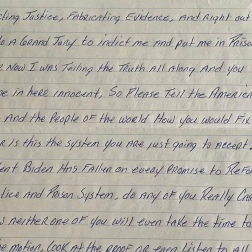 cting Justice, Fabricating Evidence, And Right out
to A Grand Jury to indict me and put me in Prison
e Now I was Telling the Truth All Along And you
e in here innocent, So Please Tell the America
And the People of the world How you would Fix
or is this the system you are just going to Accept.
dent Biden Has Fallen on every Promise to Refor
tice and Prison System, do Any of you Really Care
s neither one of you will even take the time to
he motion, Look at the proof or even Listen to all